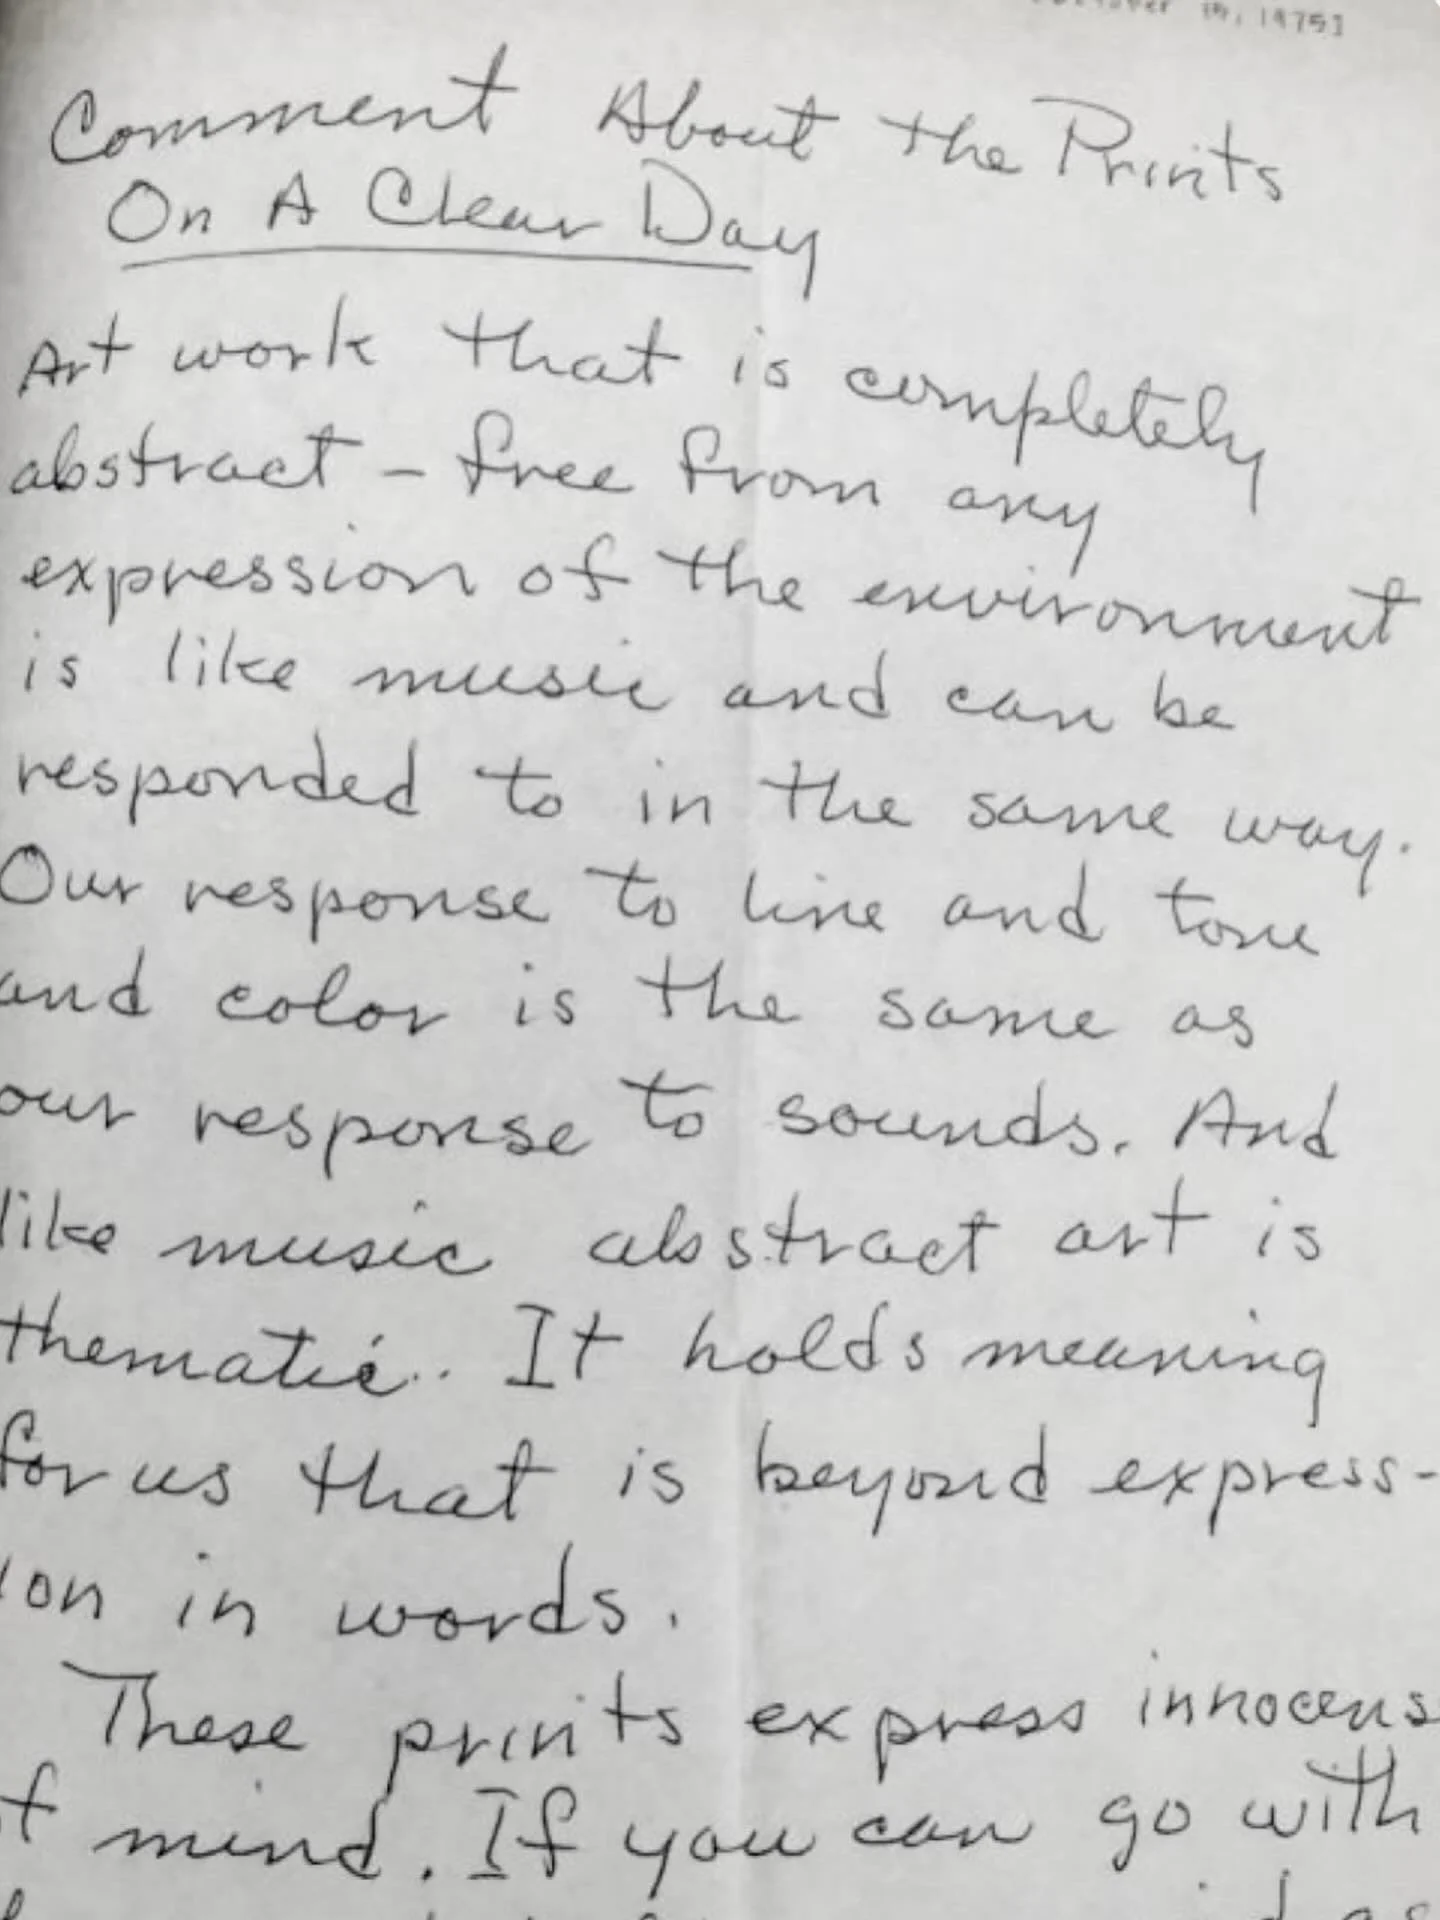 19, 1975]
Comment About the Prints
On A Clear Day
Art work that is completely
abstract – free from any
expression of the environment
is like music and can be
responded to in the same way.
Our response to line and tone
and color is the same as
our response to sounds. And
like music abstract art is
thematic. It holds meaning
for us that is beyond express-
ion in words.
These prints express innocens
of mind. If you can go with